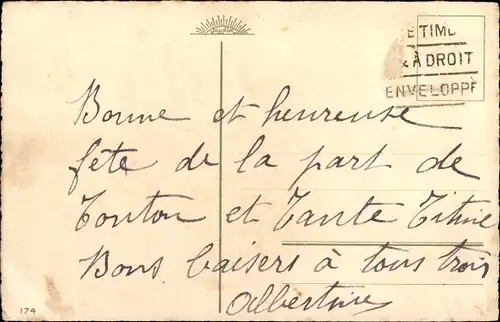 E TIMB
& À DROIT
ENVELOPPE
Bonne et heureuse
fête de la part de
Tonton et Tante Titine
Bons baisers à tous trois
Albertine
174